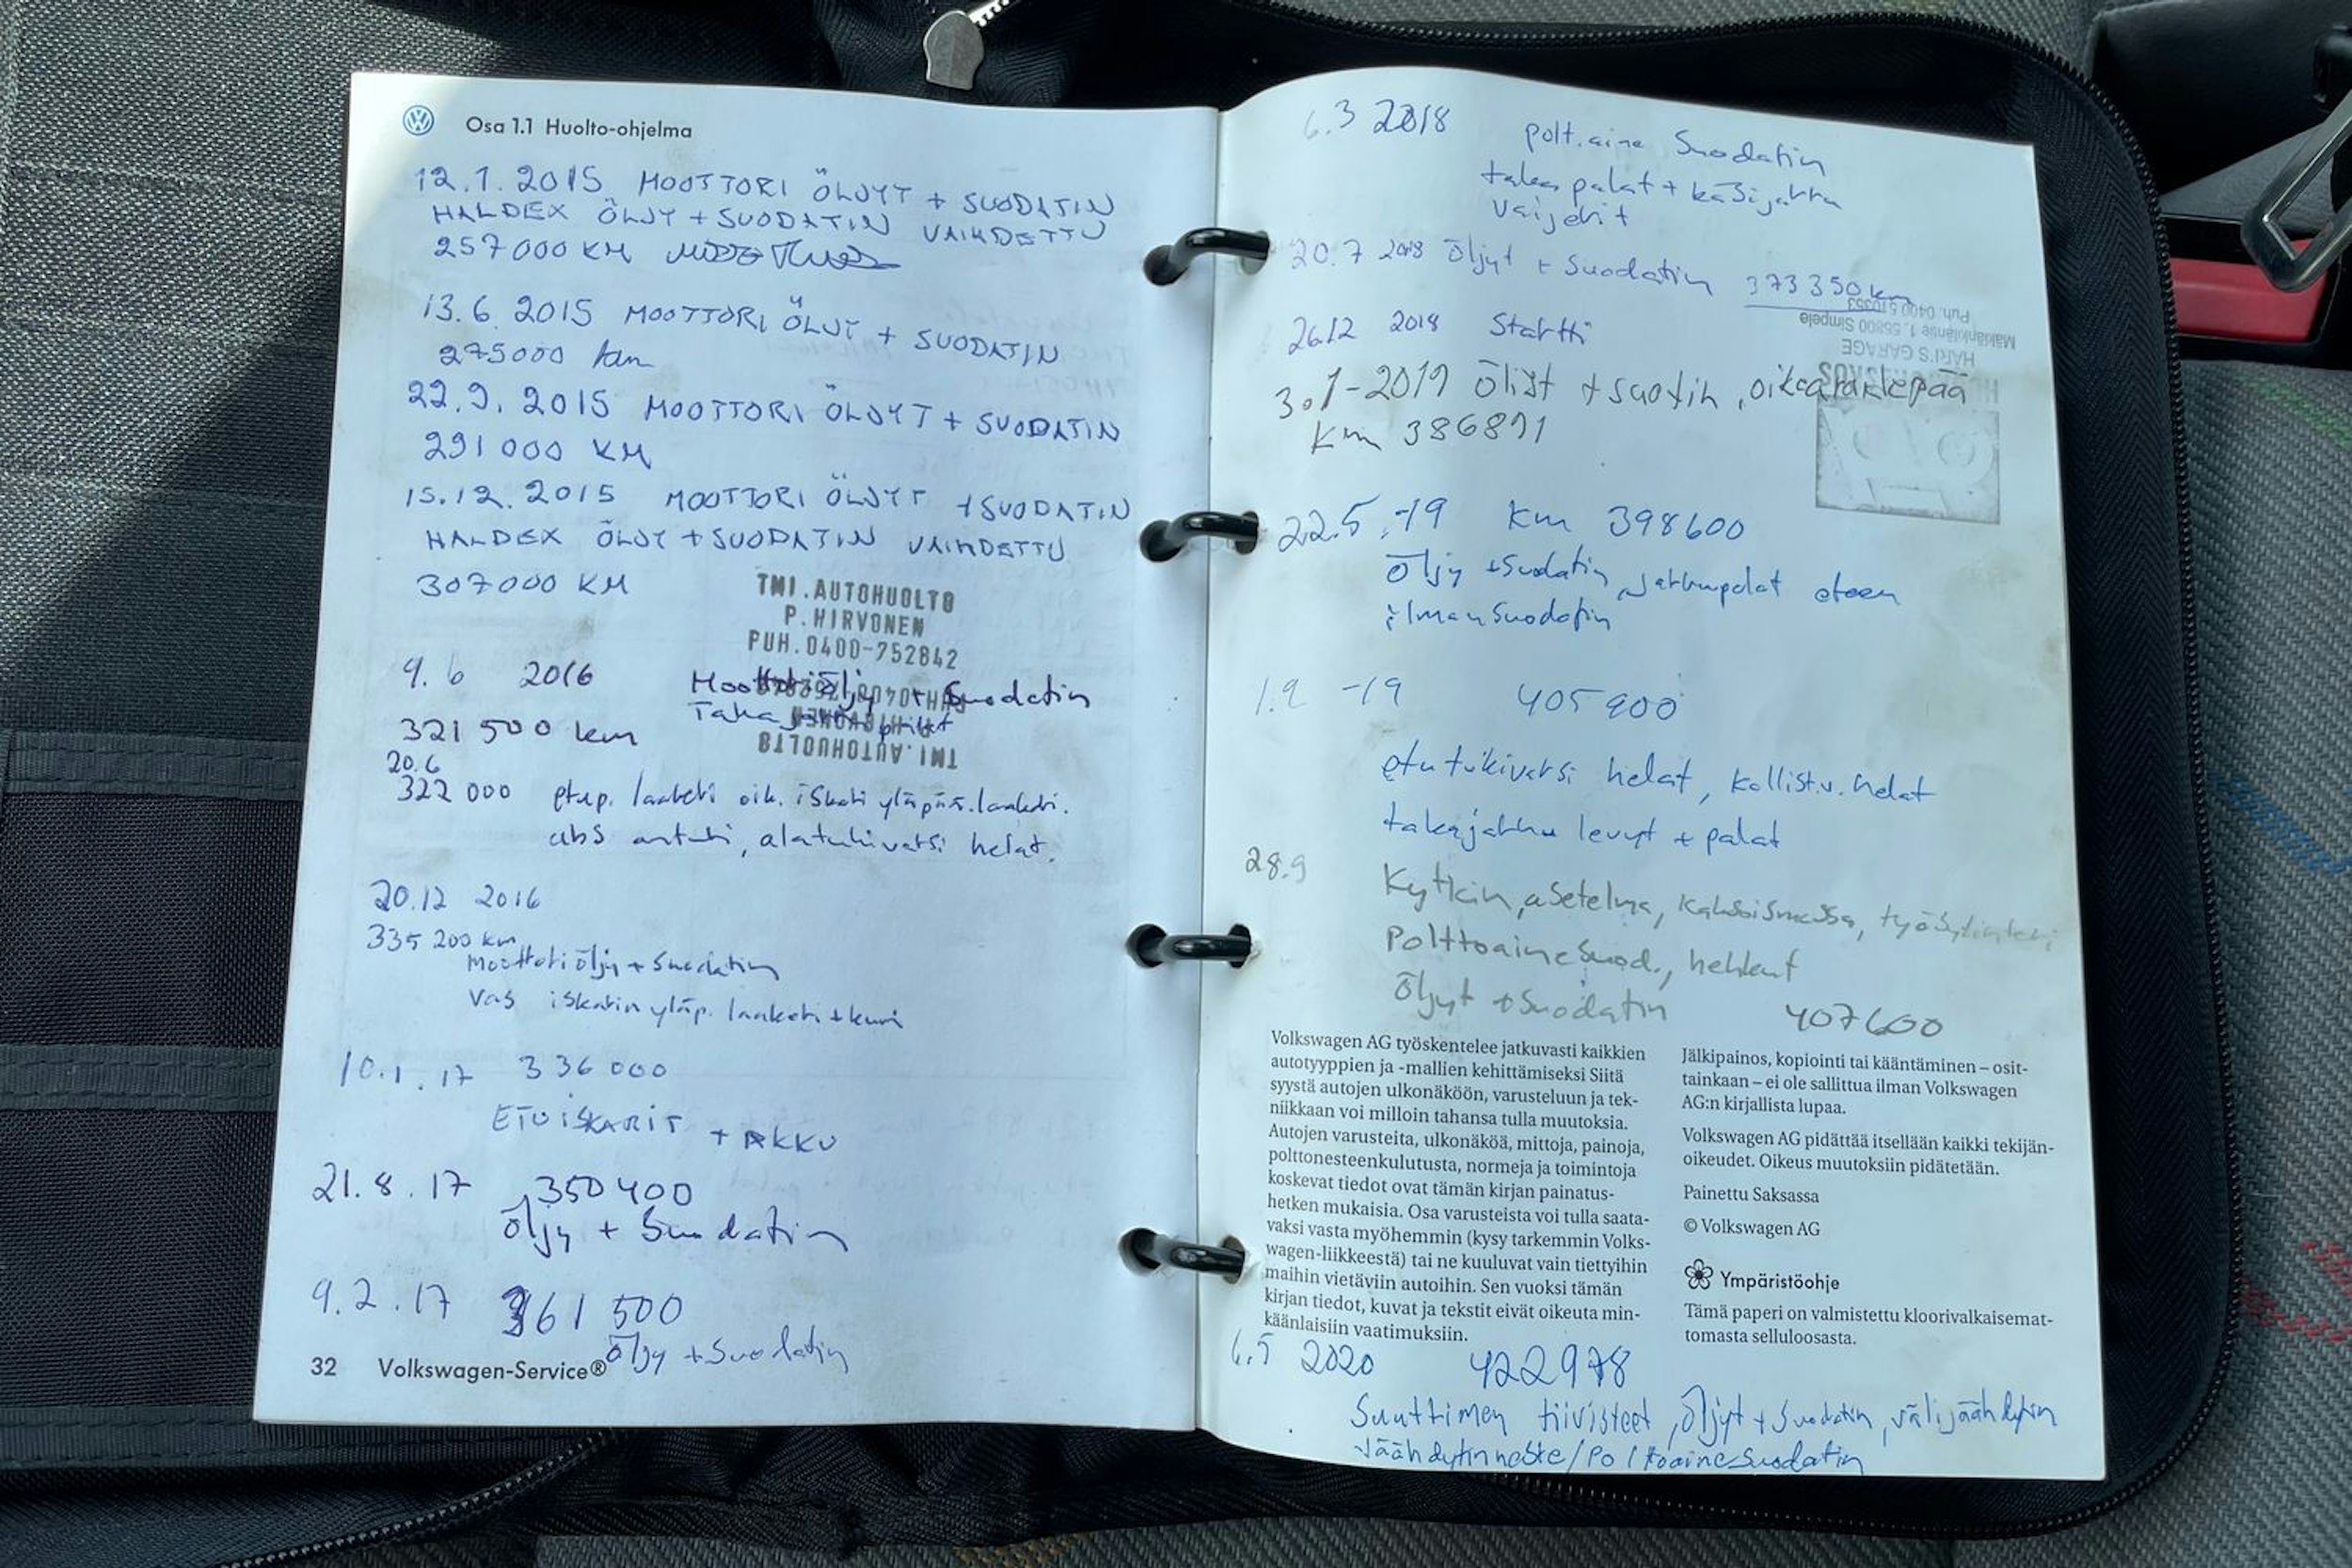 Osa 1.1 Huolto-ohjelma
12.1.2015 MOOTTORI ÖLJYT + SUODATIN
HALDEX ÖLJY + SUODATIN VAIHDETTU
257000 KM
13.6 2015 MOOTTORI ÖLJYT + SUODATIN
275000 km
22.9.2015 MOOTTORI ÖLJYT + SUODATIN
291000 KM
15.12.2015 MOOTTORI ÖLJYT + SUODATIN
HALDEX ÖLJY + SUODATIN VAIHDETTU
307000 KM
TMI.AUTOHUOLTO
P.HIRVONEN
PUH.0400-752842
9.6 2016 Moottoriöljy + Suodatin
Taka
321 500 km
TMI.AUTOHUOLTO
20.6
322 000 etup. laakeri oik. iskari yläpää.laakeri.
abs anturi, alatukivarsi helat.
20.12 2016
335 200 km
Moottoriöljy + Suodatin
Vas iskarin yläp. laakeri + kumi
10.1.17 336000
ETUISKARIT + AKKU
21.8.17 350400
Öljy + Suodatin
9.2.17 361 500
Öljy + Suodatin
32 Volkswagen-Service®
6.3 2018 polt.aine Suodatin
taka palat + käsijarru
vaijerit
20.7 2018 Öljyt + Suodatin 373350 km
Puh. 0400 510353
Mäkiänkilänse 1, 55800 Simpele
HARI'S GARAGE
26.12 2018 Startti
3.1-2019 Öljyt + suotin, oikea raidetepää
Km 386891
22.5.-19 Km 398600
Öljy + Suodatin, jarrupalat eteen
ilmansuodatin
1.9 -19 405900
etutukivarsi helat, kallist.v. helat
takajarru levyt + palat
28.9 Kytkin, asetelma, kaksoismassa, työsylinteri
Polttoainesuod., hehkut
Öljyt + Suodatin 407600
Volkswagen AG työskentelee jatkuvasti kaikkien
autotyyppien ja -mallien kehittämiseksi Siitä
syystä autojen ulkonäköön, varusteluun ja tek-
niikkaan voi milloin tahansa tulla muutoksia.
Autojen varusteita, ulkonäköä, mittoja, painoja,
polttonesteenkulutusta, normeja ja toimintoja
koskevat tiedot ovat tämän kirjan painatus-
hetken mukaisia. Osa varusteista voi tulla saata-
vaksi vasta myöhemmin (kysy tarkemmin Volks-
wagen-liikkeestä) tai ne kuuluvat vain tiettyihin
maihin vietäviin autoihin. Sen vuoksi tämän
kirjan tiedot, kuvat ja tekstit eivät oikeuta min-
käänlaisiin vaatimuksiin.
Jälkipainos, kopiointi tai kääntäminen – osit-
tainkaan – ei ole sallittua ilman Volkswagen
AG:n kirjallista lupaa.
Volkswagen AG pidättää itsellään kaikki tekijän-
oikeudet. Oikeus muutoksiin pidätetään.
Painettu Saksassa
© Volkswagen AG
Ympäristöohje
Tämä paperi on valmistettu kloorivalkaisemat-
tomasta selluloosasta.
6.5 2020 422978
Suuttimen tiivisteet, Öljyt + Suodatin, välijäähdytin
Jäähdytinneste/Polttoainesuodatin